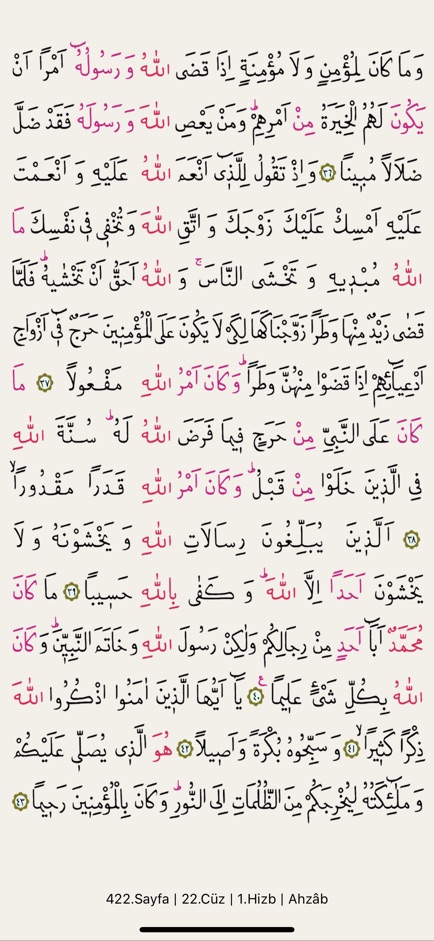 وَمَا كَانَ لِمُؤْمِنٍ وَلَا مُؤْمِنَةٍ اِذَا قَضَى اللّٰهُ وَرَسُولُهُٓ اَمْرًا اَنْ
يَكُونَ لَهُمُ الْخِيَرَةُ مِنْ اَمْرِهِمْۜ وَمَنْ يَعْصِ اللّٰهَ وَرَسُولَهُ فَقَدْ ضَلَّ
ضَلَالًا مُبِينًا ﴿٣٦﴾ وَاِذْ تَقُولُ لِلَّذِٓي اَنْعَمَ اللّٰهُ عَلَيْهِ وَاَنْعَمْتَ
عَلَيْهِ اَمْسِكْ عَلَيْكَ زَوْجَكَ وَاتَّقِ اللّٰهَ وَتُخْفِي فِي نَفْسِكَ مَا
اللّٰهُ مُبْدِيهِ وَتَخْشَى النَّاسَۚ وَاللّٰهُ اَحَقُّ اَنْ تَخْشٰيهُۜ فَلَمَّا
قَضٰى زَيْدٌ مِنْهَا وَطَرًا زَوَّجْنَاكَهَا لِكَيْ لَا يَكُونَ عَلَى الْمُؤْمِنِينَ حَرَجٌ فِٓي اَزْوَاجِ
اَدْعِيَٓائِهِمْ اِذَا قَضَوْا مِنْهُنَّ وَطَرًاۜ وَكَانَ اَمْرُ اللّٰهِ مَفْعُولًا ﴿٣٧﴾ مَا
كَانَ عَلَى النَّبِيِّ مِنْ حَرَجٍ فِيمَا فَرَضَ اللّٰهُ لَهُۜ سُنَّةَ اللّٰهِ
فِي الَّذِينَ خَلَوْا مِنْ قَبْلُۜ وَكَانَ اَمْرُ اللّٰهِ قَدَرًا مَقْدُورًاۙ
﴿٣٨﴾ اَلَّذِينَ يُبَلِّغُونَ رِسَالَاتِ اللّٰهِ وَيَخْشَوْنَهُ وَلَا
يَخْشَوْنَ اَحَدًا اِلَّا اللّٰهَۜ وَكَفٰى بِاللّٰهِ حَسِيبًا ﴿٣٩﴾ مَا كَانَ
مُحَمَّدٌ اَبَٓا اَحَدٍ مِنْ رِجَالِكُمْ وَلٰكِنْ رَسُولَ اللّٰهِ وَخَاتَمَ النَّبِيِّنَۜ وَكَانَ
اللّٰهُ بِكُلِّ شَيْءٍ عَلِيمًا۟ ﴿٤٠﴾ يَٓا اَيُّهَا الَّذِينَ اٰمَنُوا اذْكُرُوا اللّٰهَ
ذِكْرًا كَثِيرًاۙ ﴿٤١﴾ وَسَبِّحُوهُ بُكْرَةً وَاَصِيلًا ﴿٤٢﴾ هُوَ الَّذِي يُصَلِّي عَلَيْكُمْ
وَمَلٰٓئِكَتُهُ لِيُخْرِجَكُمْ مِنَ الظُّلُمَاتِ اِلَى النُّورِۜ وَكَانَ بِالْمُؤْمِنِينَ رَحِيمًا ﴿٤٣﴾
422.Sayfa | 22.Cüz | 1.Hizb | Ahzâb